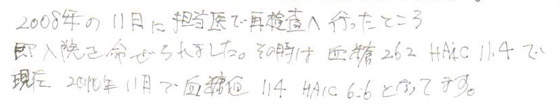 2008年の11月に担当医で再検査へ行ったところ
即入院を命ぜられました。その時は血糖262 HA1C 11.4で
現在 2010年11月で血糖値 114 HA1C 6.6となってます。